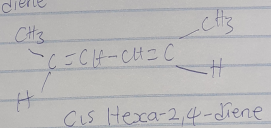 diene
CH3 CH3
C=CH-CH=C
H H
Cis Hexa-2,4-diene